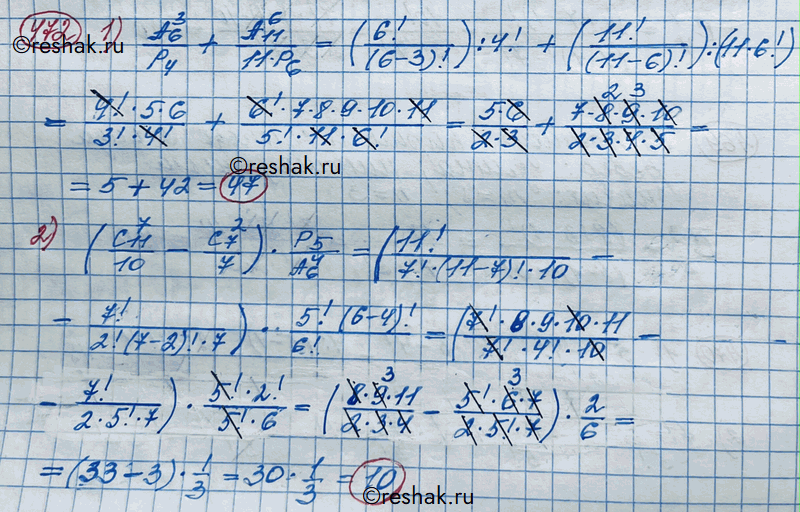 472 1) A₆³/P₄ + A₁₁⁶/(11·P₆) = (6!/(6-3)!):4! + (11!/(11-6)!):(11·6!)
= 4!·5·6/(3!·4!) + 6!·7·8·9·10·11/(5!·11·6!) = 5·6/(2·3) + 7·8·9·10/(2·3·4·5) = 2 3
©reshak.ru
= 5 + 42 = 47
2) (C₁₁⁷/10 - C₇²/7) · P₅/A₆⁴ = (11!/(7!·(11-7)!·10) -
- 7!/(2!(7-2)!·7)) · 5!(6-4)!/6! = (7!·8·9·10·11/(7!·4!·10) -
- 7!/(2·5!·7)) · 5!·2!/(5!·6) = (8·9·11/(2·3·4) - 5!·6·7/(2·5!·7)) · 2/6 = 3 3
= (33-3)·1/3 = 30·1/3 = 10
©reshak.ru